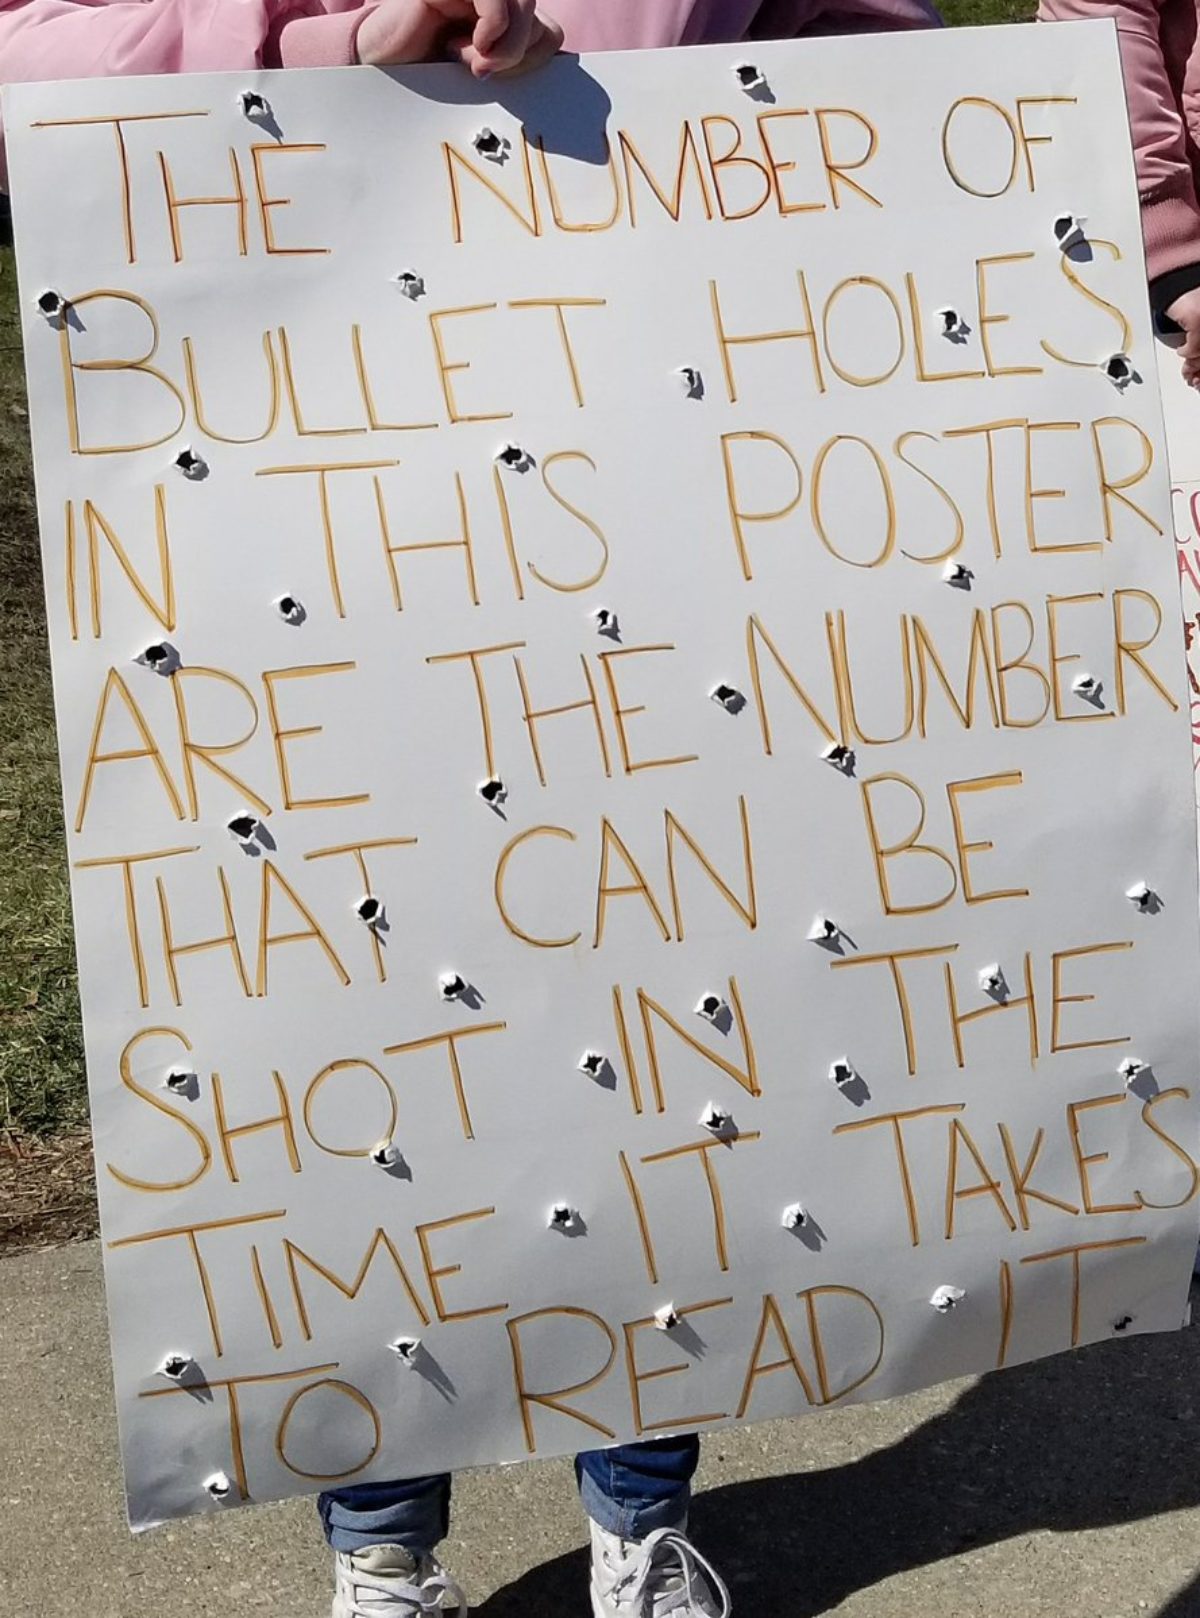 THE NUMBER OF
BULLET HOLES
IN THIS POSTER
ARE THE NUMBER
THAT CAN BE
SHOT IN THE
TIME IT TAKES
TO READ IT